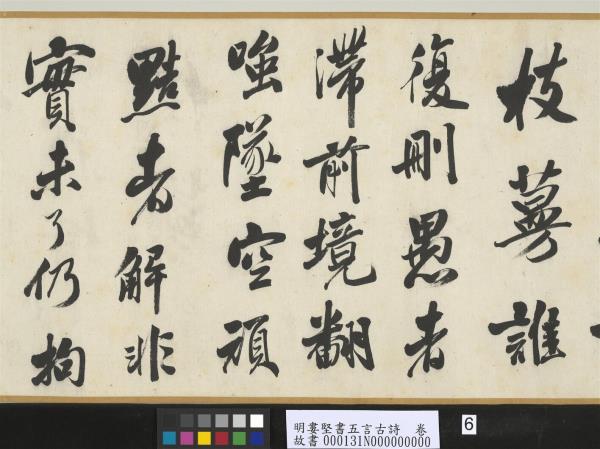 枝蔓誰
復刪愚者
滯前境翻
嗤墜空頑
黠者解非
實未了仍拘
明婁堅書五言古詩 卷
故書000131N000000000
6